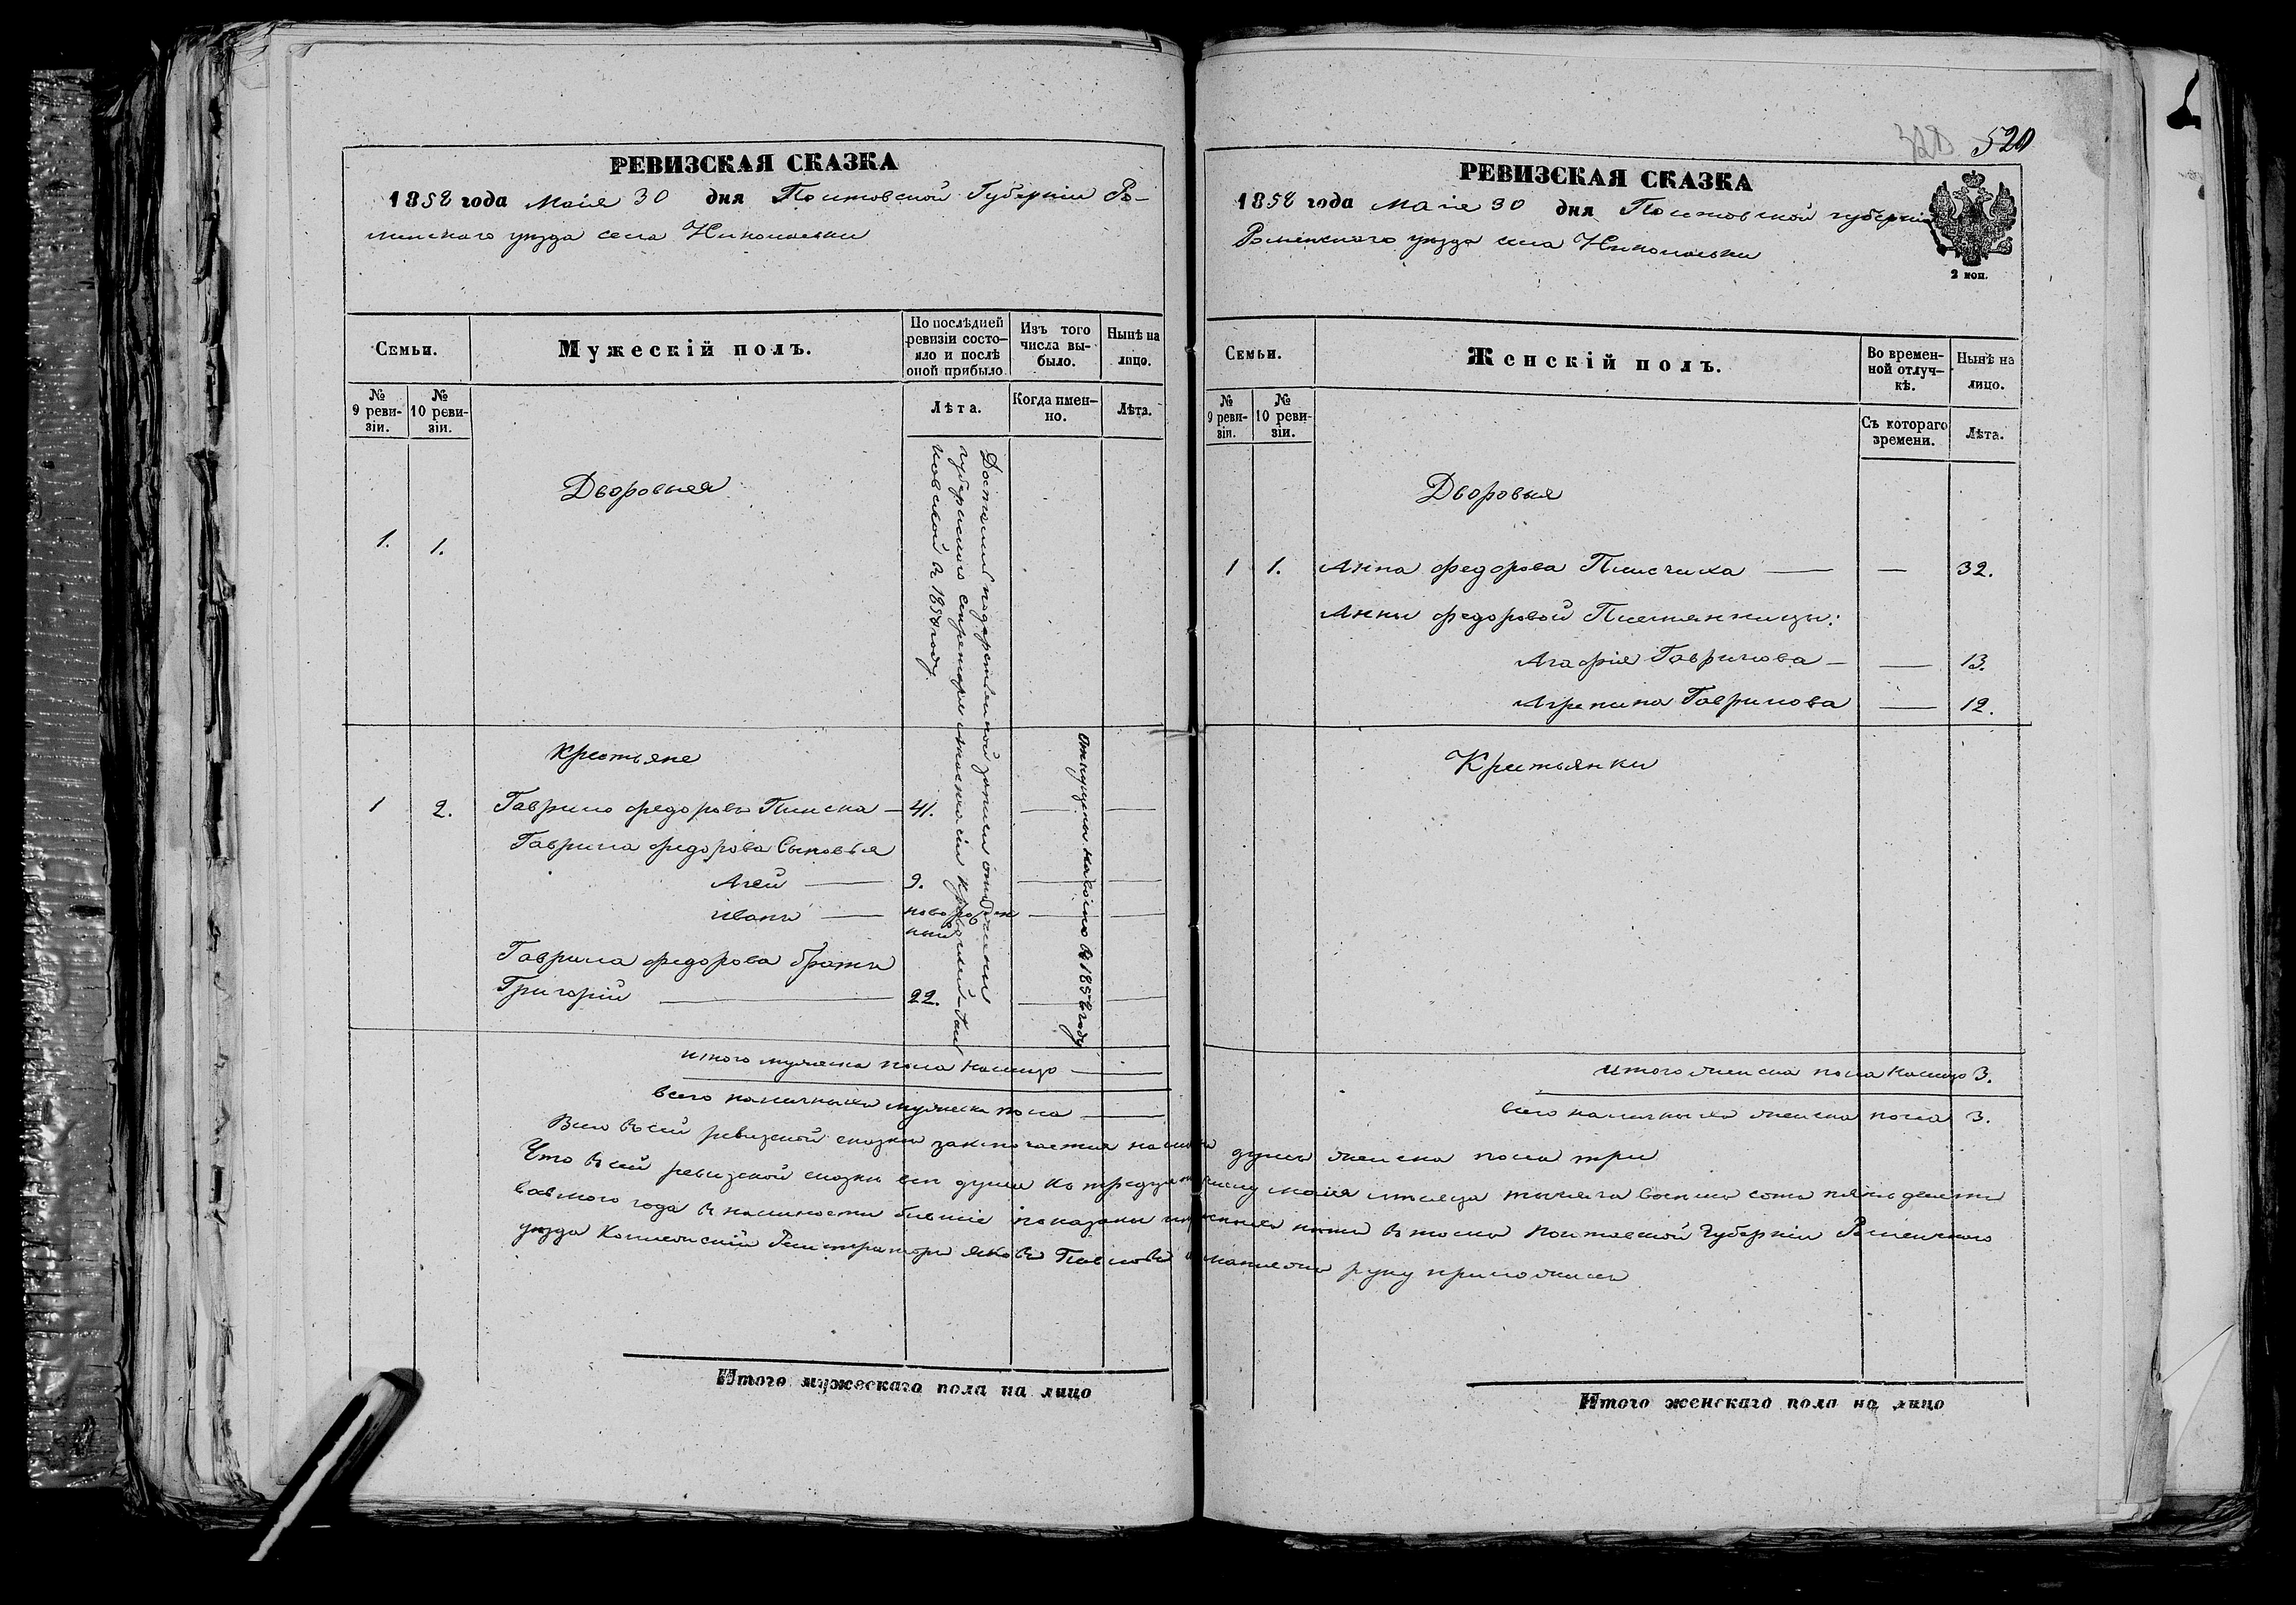 РЕВИЗСКАЯ СКАЗКА
1858 года Маія 30 дня Полтавской Губерніи Ро-
менскаго уѣзда села Николаевки
Семьи.
Мужескій полъ.
По послѣдней ревизіи состо-
яло и послѣ оной прибыло.
Изъ того числа вы-
было.
Нынѣ на лицо.
№ 9 реви-
зіи.
№ 10 реви-
зіи.
Лѣта.
Когда имен-
но.
Лѣта.
Дворовыя
1. 1.
Достались по
губернскаго секретаря
въ 1858 году
Крестьяне
1 2. Гаврило Федоровъ Плиска — 41. — —
Гаврила Федорова Сыновья
Агей — 9. — —
Иванъ — новорожден
ный — —
Гаврила Федорова братъ
Григорій — 22. — —
Отпущены на волю въ 1858 году
итого мужеска пола налицо —
всего наличныхъ мужеска пола —
Итого мужескаго пола на лицо
520
РЕВИЗСКАЯ СКАЗКА
1858 года Маія 30 дня Полтавской губерніи
Роменскаго уѣзда села Николаевки
2 коп.
Семьи.
Женскій полъ.
Во времен-
ной отлуч-
кѣ.
Нынѣ на лицо.
№ 9 реви-
зіи.
№ 10 реви-
зіи.
Съ котораго времени.
Лѣта.
Дворовыя
1 1. Анна Федорова Плисчиха — — 32.
Анны Федоровой Племянницы:
Агафія Гаврилова — — 13.
Агрепина Гаврилова — 12.
Крестьянки
итого женска пола налицо 3.
всего наличныхъ женска пола 3.
Всего въ сей ревизской сказки заключается налицо душъ женска пола три
Что въ сей ревизской сказки всѣ души къ маія мѣсяца тысяча восемь сотъ пятьдесятъ
восьмого года въ наличности бывшіе показаны въ томъ Полтавской Губерніи Роменскаго
уѣзда Коллежскій Регистраторъ Яковъ Павловъ руку приложилъ
Итого женскаго пола на лицо